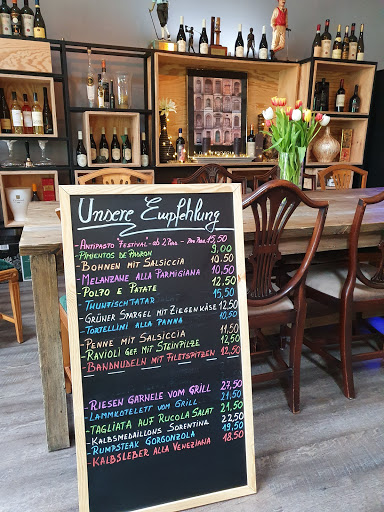 Unsere Empfehlung
- Antipasto Festival - ab 2 Pers. - Pro Pers. 15,50
- Pimientos de Padron 9,00
- Bohnen mit Salsiccia 10,50
- Melanzane alla Parmigiana 10,50
- Polpo e Patate 12,50
- Thunfischtatar 15,50
- Grüner Spargel mit Ziegenkäse 12,50
- Tortellini alla panna 10,50
- Penne mit Salsiccia 11,50
- Ravioli gef. mit Steinpilze 12,50
- Bandnudeln mit Filetspitzen 12,50
- Riesen Garnele vom Grill 27,50
- Lammkotelett vom Grill 21,50
- Tagliata auf Rucola Salat 21,50
- Kalbsmedaillons Sorentina 22,50
- Rumpsteak Gorgonzola 19,50
- Kalbsleber alla Veneziana 18,50